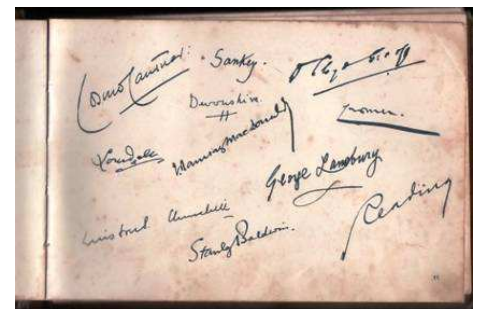 Cosmo Cantuar:
Sankey.
Devonshire.
Cromer.
Lonsdale
J Ramsay MacDonald
George Lansbury
Winston Churchill
Stanley Baldwin.
Reading